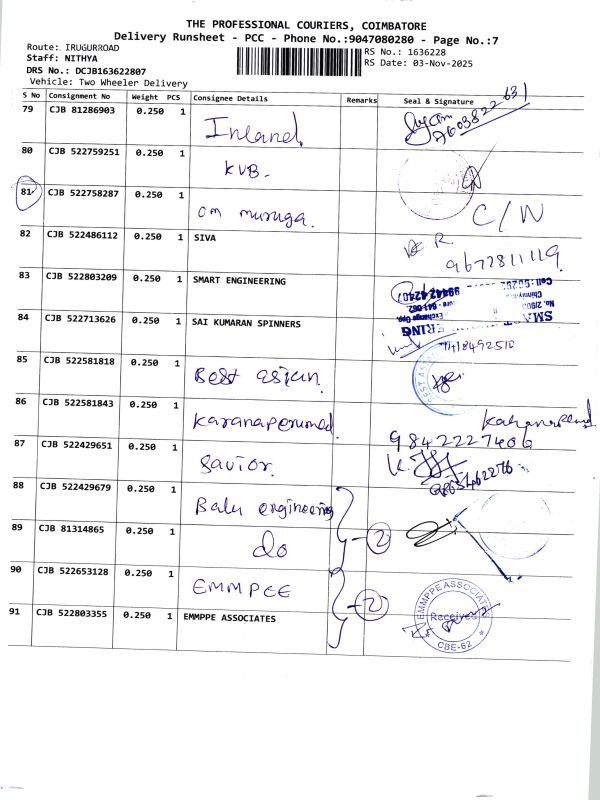 THE PROFESSIONAL COURIERS, COIMBATORE
Delivery Runsheet - PCC - Phone No.:9047080280 - Page No.:7
Route: IRUGURROAD
RS No.: 1636228
Staff: NITHYA
RS Date: 03-Nov-2025
DRS No.: DCJB163622807
Vehicle: Two Wheeler Delivery
S No Consignment No Weight PCS Consignee Details Remarks Seal & Signature
79 CJB 81286903 0.250 1 Inland
80 CJB 522759251 0.250 1 KVB.
81 CJB 522758287 0.250 1 om muruga. C/W
82 CJB 522486112 0.250 1 SIVA
9672811119.
83 CJB 522803209 0.250 1 SMART ENGINEERING
84 CJB 522713626 0.250 1 SAI KUMARAN SPINNERS
7418492510
85 CJB 522581818 0.250 1 Best asian.
86 CJB 522581843 0.250 1 Karanaperumal.
9842227406
87 CJB 522429651 0.250 1 Savior.
88 CJB 522429679 0.250 1 Balu engineering
89 CJB 81314865 0.250 1 do 2
90 CJB 522653128 0.250 1 EMMPEE 2
91 CJB 522803355 0.250 1 EMMPPE ASSOCIATES
EMMPPE ASSOCIATES
Received
CBE-62